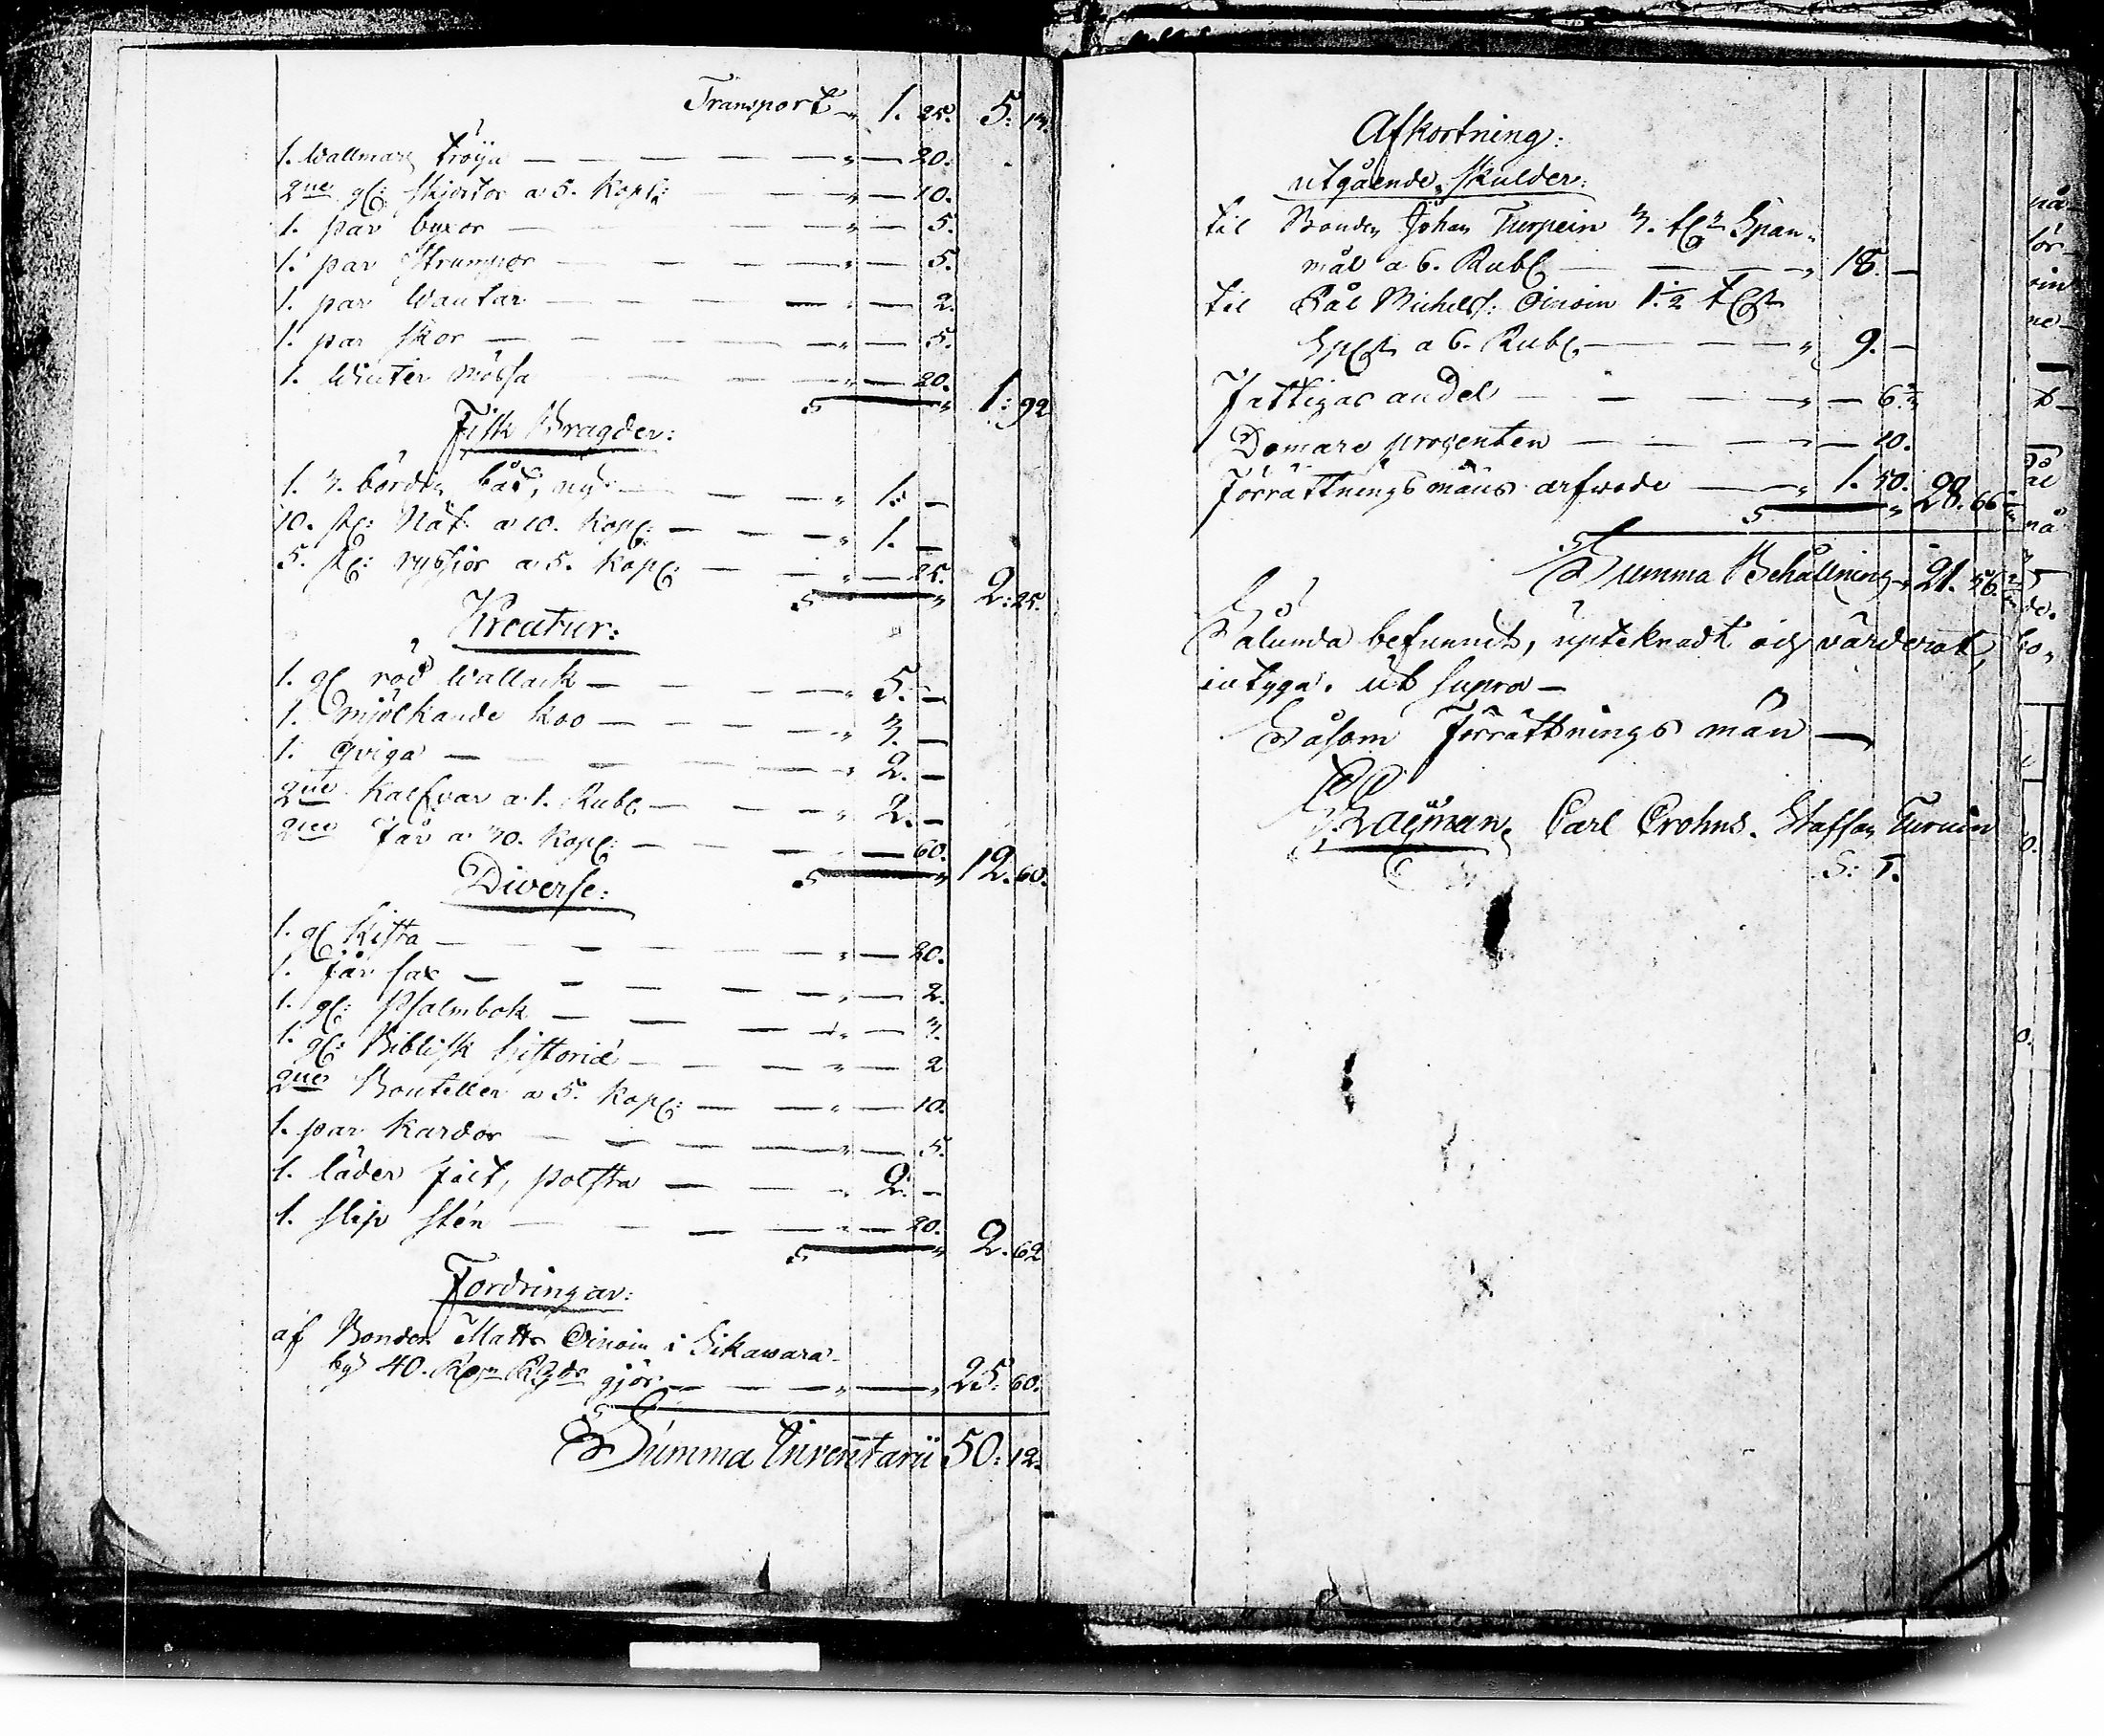 Transport „ 1. 25. 5. 13.
1. Wallmars tröija — „ — 20.
2ne gl: skjortor a 5. Kop: — „ — 10.
1. par byxor — „ — 5.
1. par Strumpor — „ — 5.
1. par Wantar — „ — 2.
1. par skor — „ — 5.
1. Winter mössa — „ — 20. 1: 92
Fisk Bragder:
1. 3. bördig båt, ny — „ 1. —
10. st: Nät a 10. Kop: — „ 1. —
5. st: ryssjor a 5. Kop: — „ — 25. 2: 25.
Kreatur:
1. gl röd Wallack — „ 5. —
1. mjölkande koo — „ 3. —
1. qviga — „ 2. —
2ne Kalfvar a 1. Rubl — „ 2. —
2ne får a 30. Kop: — „ — 60. 12. 60.
Diverse:
1. gl kista — „ — 20.
1. får sax — „ — 2.
1. gl: Psalmbok — „ — 3.
1. gl: Biblisk historia — „ — 2
2ne Bouteller a 5. Kop: — „ — 10.
1. par Kardor — „ — 5.
1. läder fält, polsta — „ 2. —
1. slip sten — „ — 20. 2. 62
Fordringar:
af Bonden Matts Oinoin i Sikawara
by 40. Rgs gjör — „ — „ 25. 60.
Summa Inventarii 50: 12.
Afkortning:
utgående skulder:
til Bonden Johan Turpein 3. tr Span-
mål a 6. Rubl — „ 18. —
til Pål Michels: Oinoin 1 1/2 t
Sp a 6. Rubl — „ 9. —
Fattigas andel — „ — 6 2/3
Domare procenten — „ — 10.
Förrättningsmäns arfwode — „ 1. 50. 28. 66 2/3
Summa Behållning „ 21. 45 1/3
Sålunda befunnit, uptecknadt och värderat,
intyga. ut supra —
Såsom Förrättnings män —
Carl Crohns. Staffan Turuin
S. T.